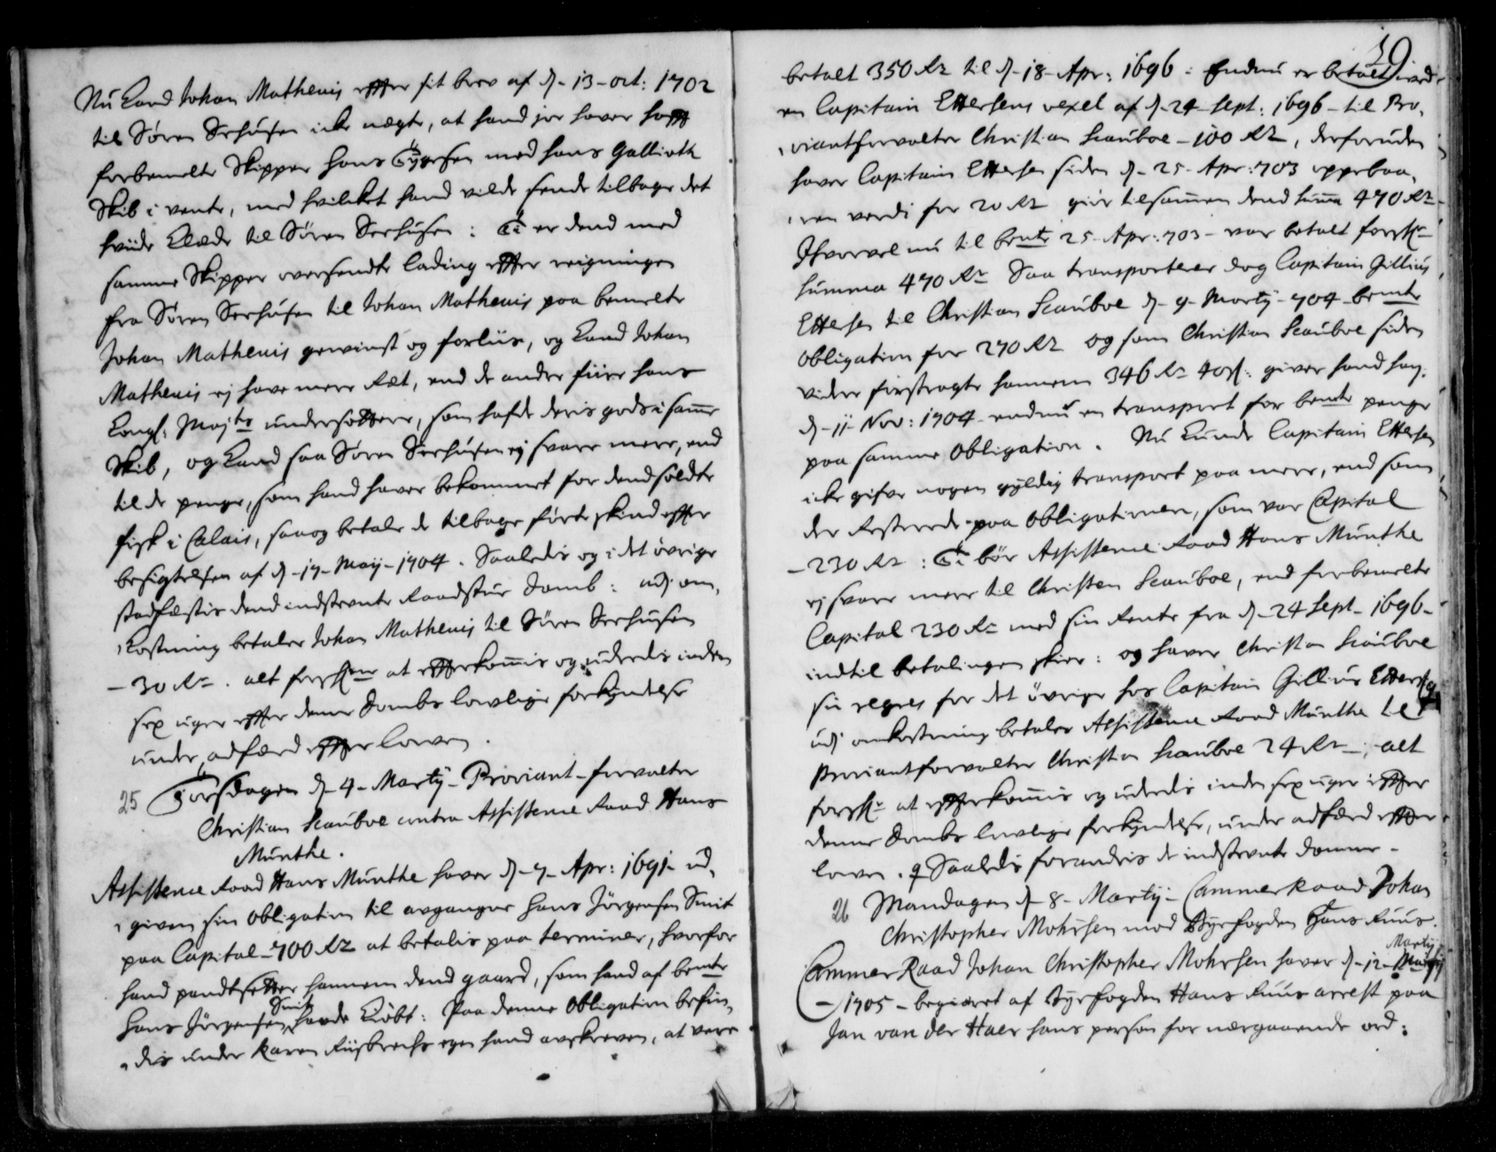 Nu kand Johan Mathenis effter sit brev af d. 13 oct: 1702
til Søren Seehusen icke nægte, at hand jo haver hafft
forbemelte Skipper Hans med hans Gallioth
Skib i vente, med hvilket hand vilde sende tilbage det
hviide Klæde til Søren Seehusen: Ti er dend med
samme Skipper oversendte lading effter reigningen
fra Søren Seehusen til Johan Mathenis paa bemelte
Johan Mathenis gewinst og forliis, og kand Johan
Mathenis ej have mere Ræt, end de andre fiire hans
Kongl: Maj:ts undersottere, som hafde deris gods i samme
Skib, og kand saa Søren Seehusen ej svare mere, end
til de penge, som hand haver bekommet for dend soldte
fisk i Calais, saa og betale de tilbage førte skind effter
besigtelsen af d. 17 Maij 1704. Saaledis og i det øvrige
stadfæstis dend indstevnte Raadstue Domb: udj om,
,kostning betaler Johan Mathenis til Søren Seehusen
- 30 Rdr. alt at effterkommis og udredis inden
sex uger effter denne Dombs lovlige forkyndelse
under adfærd effter loven.
25 Torsdagen d. 4 Martij Proviant-forvalter
Christian Stauboe contra Assistence Raad Hans
Munthe.
Assistence Raad Hans Munthe haver d. 7 Apr: 1691 ud,
,given sin obligation til avgangne Hans Jørgensen Smit
paa Capital 700 Rdr at betalis paa terminer, hvorfor
hand pandtsetter hannem dend gaard, som hand af bemte
Hans Jørgensen Smit havde kiøbt: Paa denne obligation befin,
,dis under Karen Riisbrechs egen hand avskreven, at være
59
betalt 350 Rdr til d. 18 Apr: 1696: Endnu er betalt ved
en Capitain Ettersens vexel af d. 24 Sept: 1696 til Pro,
,viantforvalter Christian Stauboe 100 Rdr, desforuden
haver Capitain Ettersen siden d. 25 Apr: 703 oppebaa,
,ren verdi for 20 Rdr giør tilsammen dend summa 470 Rdr
Ihvorvel nu til bemte 25 Apr: 703 var betalt
summa 470 Rdr Saa transporterer dog Capitain Gillius
Ettersen til Christian Stauboe d. 9 Martij 704 bemte
obligation for 270 Rdr og som Christian Stauboe siden
videre forstragte hannem 346 Rdr giver hand ham
d. 11 Nov: 1704 endnu en transport for bemte penge
paa samme obligation. Nu kunde Capitain Ettersen
icke gifve nogen gyldig transport paa mere, end som
der Resterede paa obligationen, som var Capital
- 230 Rdr: Ti bør Assistence Raad Hans Munthe
ej svare mere til Christen Stauboe, end forbemelte
Capital 230 Rdr med sin Rente fra d. 24 Sept 1696
indtil betalingen skeer: og haver Christian Stauboe
sin regres for det øvrige hos Capitain Gillius Ettersen
udj omkostning betaler Assistence Raad Munthe til
Proviantforvalter Christian Stauboe 24 Rdr; alt
at effterkommis og udredis inden sex uger effter
denne Dombs lovlige forkyndelse, under adfærd effter
loven. Saaledis forandris de indstevnte Domme.
26 Mandagen d. 8 Martij Cammer Raad Johan
Christopher Mohrsen mod Byefogden Hans Ruus.
Cammer Raad Johan Christopher Mohrsen haver d. 12 Martij
1705 begiæret af Byefogden Hans Ruus arrest paa
Jan van der Haer hans person for nærgaaende ord: